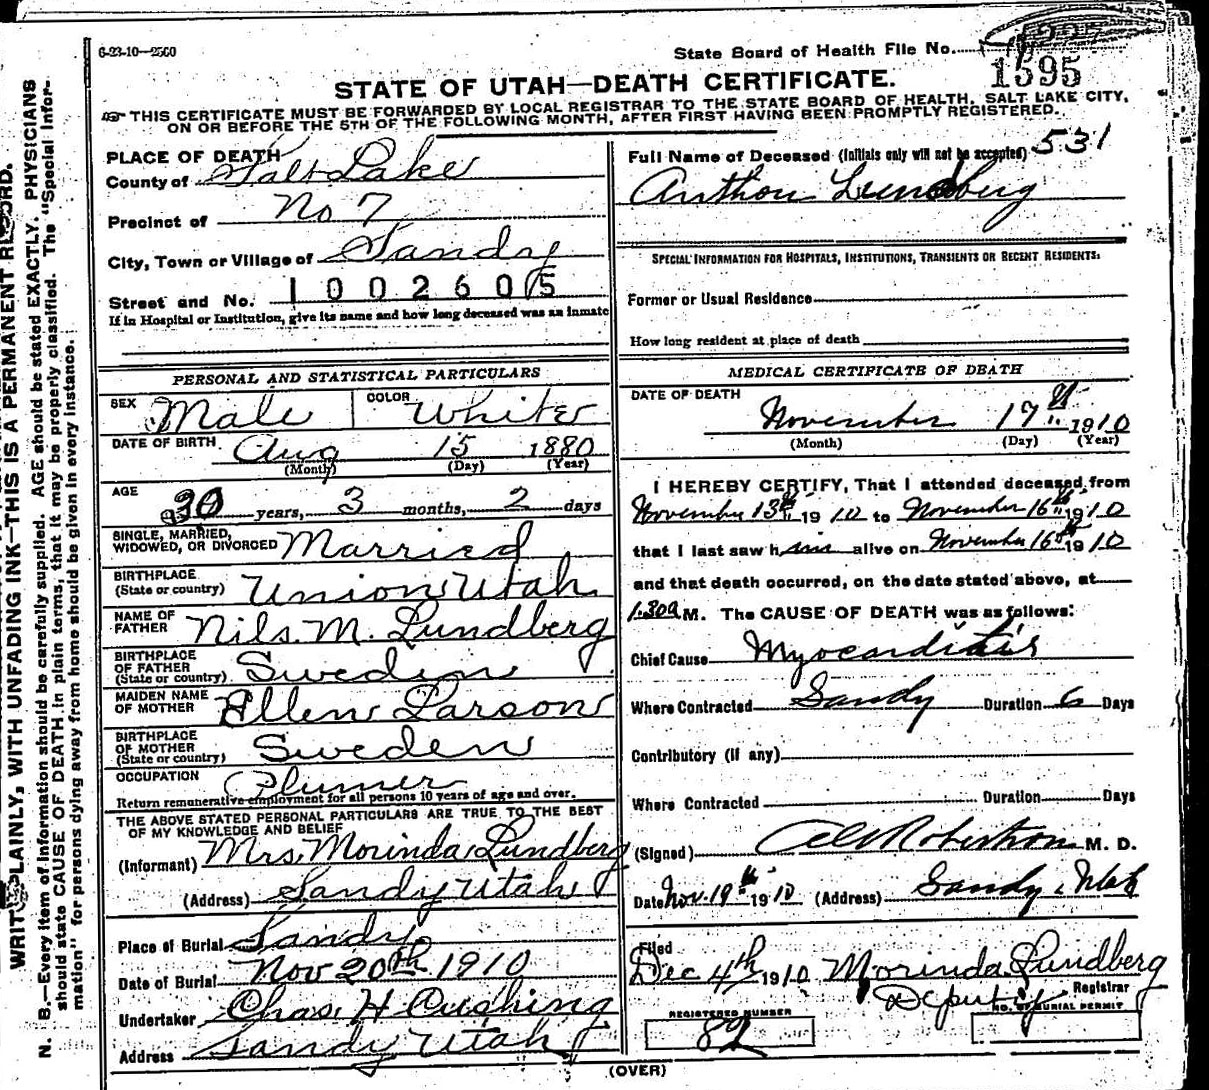 6-23-10—2500
State Board of Health File No.
1595
STATE OF UTAH—DEATH CERTIFICATE.
THIS CERTIFICATE MUST BE FORWARDED BY LOCAL REGISTRAR TO THE STATE BOARD OF HEALTH, SALT LAKE CITY,
ON OR BEFORE THE 5TH OF THE FOLLOWING MONTH, AFTER FIRST HAVING BEEN PROMPTLY REGISTERED.
PLACE OF DEATH
County of Salt Lake
Precinct of No 7
City, Town or Village of Sandy
Street and No. 1002605
If in Hospital or Institution, give its name and how long deceased was an inmate
PERSONAL AND STATISTICAL PARTICULARS
SEX Male COLOR White
DATE OF BIRTH Aug 15 1880
(Month) (Day) (Year)
AGE 30 years, 3 months, 2 days
SINGLE, MARRIED,
WIDOWED, OR DIVORCED Married
BIRTHPLACE
(State or country) Union Utah
NAME OF
FATHER Nils. M. Lundberg
BIRTHPLACE
OF FATHER
(State or country) Sweden
MAIDEN NAME
OF MOTHER Ellen Larson
BIRTHPLACE
OF MOTHER
(State or country) Sweden
OCCUPATION Plumer
Return remunerative employment for all persons 10 years of age and over.
THE ABOVE STATED PERSONAL PARTICULARS ARE TRUE TO THE BEST
OF MY KNOWLEDGE AND BELIEF
(Informant) Mrs. Morinda Lundberg
(Address) Sandy Utah
Place of Burial Sandy
Date of Burial Nov 20th 1910
Undertaker Chas. H Cushing
Address Sandy Utah
Full Name of Deceased (Initials only will not be accepted) 531
Anthon Lundberg
SPECIAL INFORMATION FOR HOSPITALS, INSTITUTIONS, TRANSIENTS OR RECENT RESIDENTS:
Former or Usual Residence
How long resident at place of death
MEDICAL CERTIFICATE OF DEATH
DATE OF DEATH
November 17th 1910
(Month) (Day) (Year)
I HEREBY CERTIFY, That I attended deceased from
November 13th 1910 to November 16th 1910
that I last saw him alive on November 16th 1910
and that death occurred, on the date stated above, at
1.30a M. The CAUSE OF DEATH was as follows:
Chief Cause Myocarditis
Where Contracted Sandy Duration 6 Days
Contributory (if any)
Where Contracted Duration Days
(Signed) Robertson M. D.
Date Nov. 19th 1910 (Address) Sandy, Utah
Filed
Dec 4th 1910 Morinda Lundberg
Deputy Registrar
REGISTERED NUMBER
82
NO. OF BURIAL PERMIT
(OVER)
WRITE PLAINLY, WITH UNFADING INK—THIS IS A PERMANENT RECORD.
N. B.—Every item of information should be carefully supplied. AGE should be stated EXACTLY. PHYSICIANS
should state CAUSE OF DEATH in plain terms, that it may be properly classified. The "Special Infor-
mation" for persons dying away from home should be given in every instance.